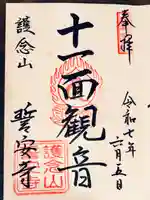 奉拝
令和七年
六月五日
十一面観音
護念山
誓安寺
護念山